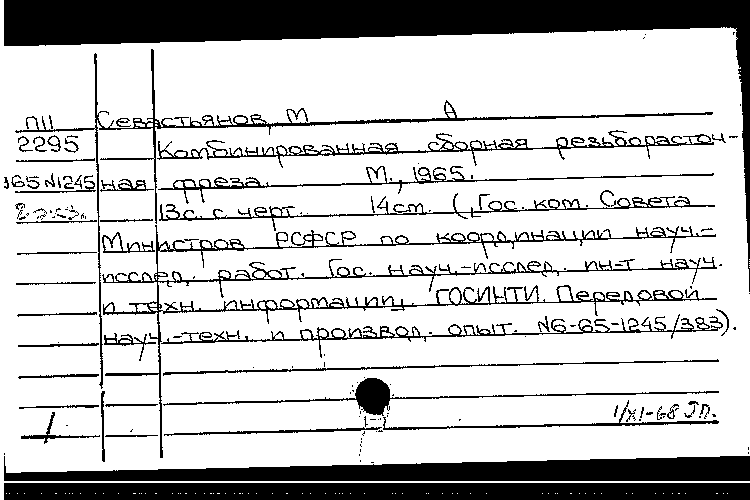 ПII Севастьянов, М А
2295 Комбинированная сборная резьборасточ-
165 N1245 ная фреза. М., 1965.
2 экз. 13с. с черт. 14см. (Гос. ком. Совета
Министров РСФСР по координации науч.-
исслед. работ. Гос. науч.-исслед. ин-т науч.
и техн. информации. ГОСИНТИ. Передовой
науч.-техн. и производ. опыт. N6-65-1245/383).
1/XI-68